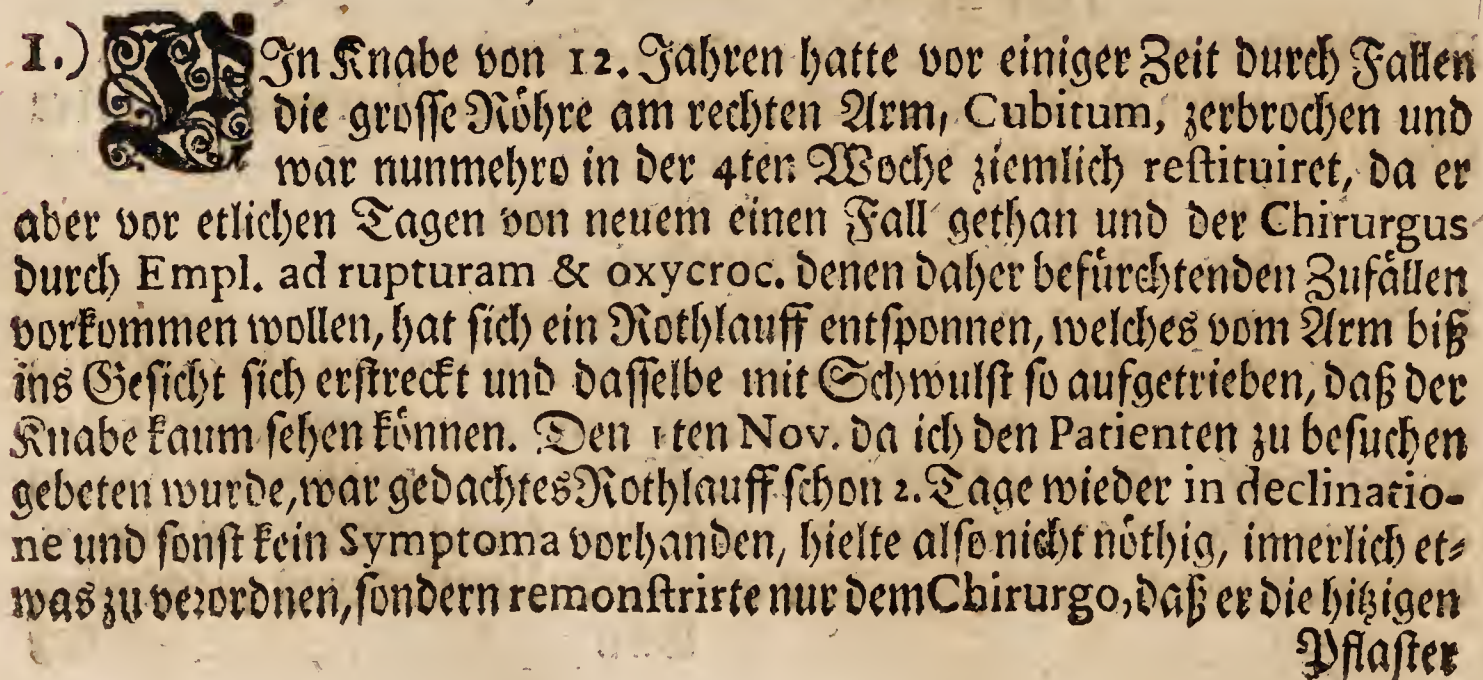 I.) EIn Knabe von 12. Jahren hatte vor einiger Zeit durch Fallen
die grosse Röhre am rechten Arm, Cubitum, zerbrochen und
war nunmehro in der 4ten Woche ziemlich restituiret, da er
aber vor etlichen Tagen von neuem einen Fall gethan und der Chirurgus
durch Empl. ad rupturam & oxycroc. denen daher befürchtenden Zufällen
vorkommen wollen, hat sich ein Rothlauff entsponnen, welches vom Arm biß
ins Gesicht sich erstreckt und dasselbe mit Schwulst so aufgetrieben, daß der
Knabe kaum sehen können. Den 1ten Nov. da ich den Patienten zu besuchen
gebeten wurde, war gedachtes Rothlauff schon 2. Tage wieder in declinatio-
ne und sonst kein Symptoma vorhanden, hielte also nicht nöthig, innerlich et-
was zu verordnen, sondern remonstrirte nur dem Chirurgo, daß er die hitzigen
Pflaster